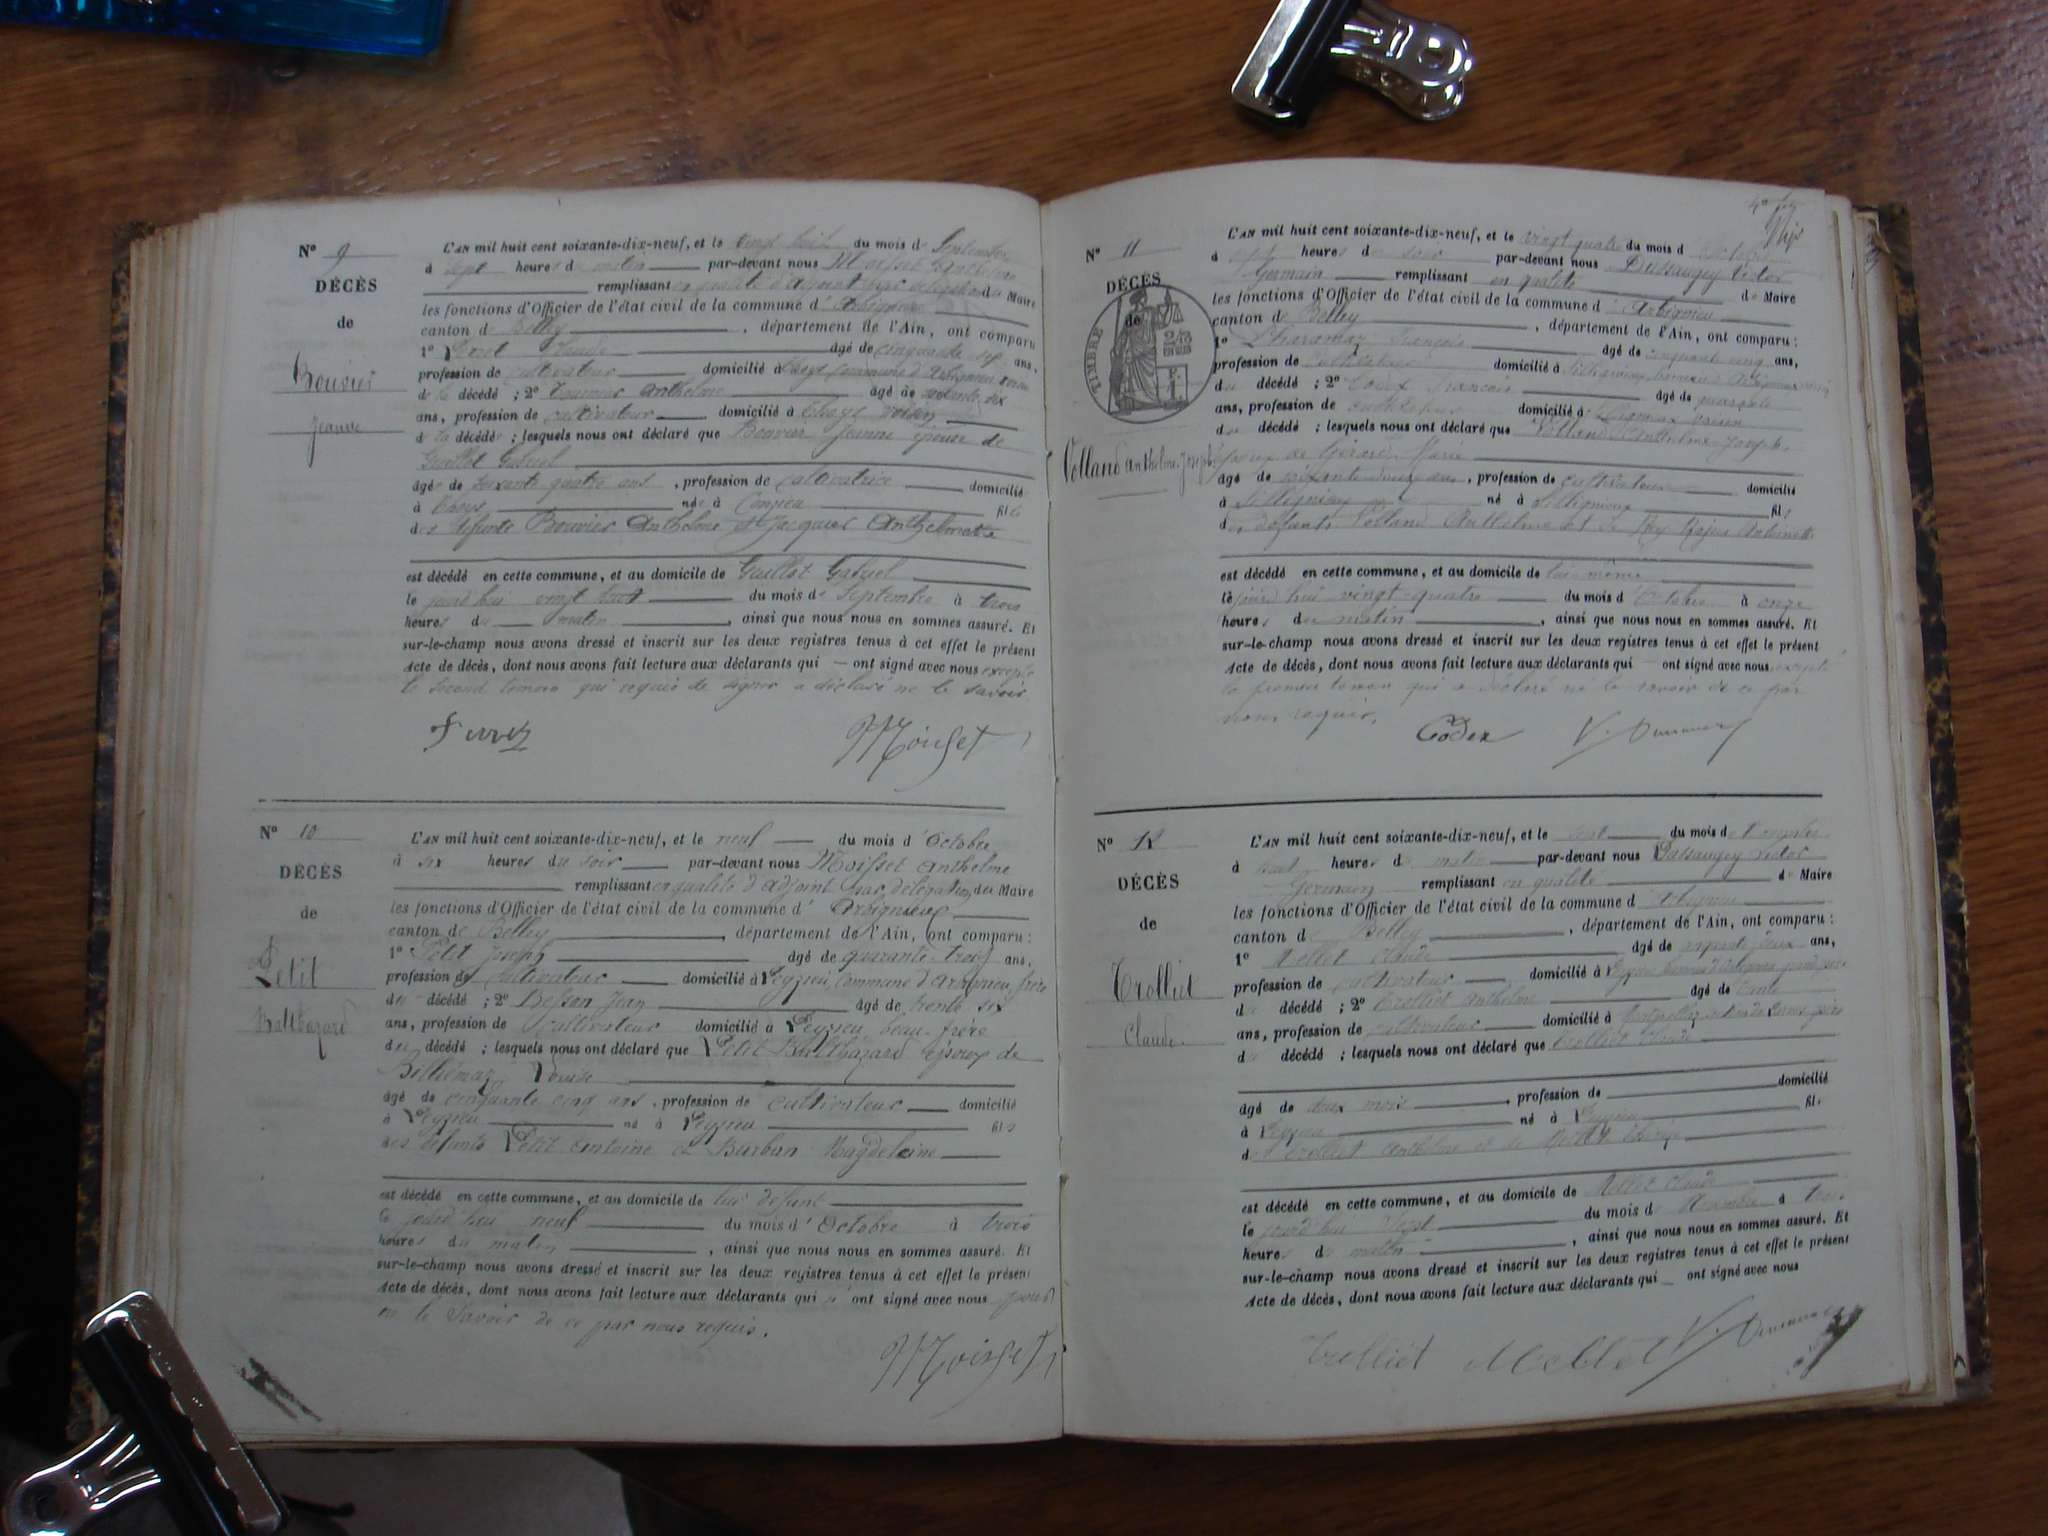 N° 9
DÉCÈS
de
Bouvier
Jeanne
L'AN mil huit cent soixante-dix-neuf, et le vingt huit du mois de Septembre
à sept heures du matin par-devant nous Moisset Anthelme
remplissant en qualité d'adjoint par délégation du Maire
les fonctions d'Officier de l'état civil de la commune d' Arbignieu
canton de Belley, département de l'Ain, ont comparu
1° Claude âgé de cinquante sept ans,
profession de cultivateur domicilié à Thoys Commune d'Arbignieu voisin
de la décédé ; 2° Anthelme âgé de soixante dix
ans, profession de cultivateur domicilié à Thoys voisin
de la décédée ; lesquels nous ont déclaré que Bouvier Jeanne épouse de
Guillot Gabriel
âgée de soixante quatre ans, profession de cultivatrice domicilié
à Thoys née à Conzieu fille
des défunts Bouvier Anthelme et Jacquier Anthelmette
est décédé en cette commune, et au domicile de Guillot Gabriel
le jourd'hui vingt huit du mois de Septembre à trois
heures du matin, ainsi que nous nous en sommes assuré. Et
sur-le-champ nous avons dressé et inscrit sur les deux registres tenus à cet effet le présent
Acte de décès, dont nous avons fait lecture aux déclarants qui — ont signé avec nous excepté
le second témoin qui requis de signer a déclaré ne le savoir.
Moisset
N° 10
DÉCÈS
de
Petit
Balthazard
L'AN mil huit cent soixante-dix-neuf, et le neuf du mois d' Octobre
à six heures du soir par-devant nous Moisset Anthelme
remplissant en qualité d'adjoint par délégation du Maire
les fonctions d'Officier de l'état civil de la commune d' Arbignieu
canton de Belley, département de l'Ain, ont comparu :
1° Petit Joseph âgé de quarante-trois ans,
profession de cultivateur domicilié à Peyzieu, Commune d'Arbignieu, frère
du décédé ; 2° Besson Jean âgé de trente six
ans, profession de cultivateur domicilié à Peyzieu, beau-frère
du décédé ; lesquels nous ont déclaré que Petit Balthazard époux de
Louise
âgé de cinquante cinq ans, profession de cultivateur domicilié
à Peyzieu né à Peyzieu fils
des défunts Petit Antoine et Burban Magdeleine
est décédé en cette commune, et au domicile de lui défunt
le jourd'hui neuf du mois d' Octobre à trois
heures du matin, ainsi que nous nous en sommes assuré. Et
sur-le-champ nous avons dressé et inscrit sur les deux registres tenus à cet effet le présent
Acte de décès, dont nous avons fait lecture aux déclarants qui n' ont signé avec nous pour
ne le savoir de ce par nous requis.
Moisset
N° 11
DÉCÈS
de
TIMBRE
Volland Anthelme Joseph
L'AN mil huit cent soixante-dix-neuf, et le vingt quatre du mois d' Octobre
à heures du soir par-devant nous Dussaugey Victor
Germain remplissant en qualité de Maire
les fonctions d'Officier de l'état civil de la commune d' Arbignieu
canton de Belley, département de l'Ain, ont comparu :
1° François âgé de cinquante cinq ans,
profession de cultivateur domicilié à Sillignieu, voisin
du décédé ; 2° Codex François âgé de quarante
ans, profession de cultivateur domicilié à voisin
du décédé ; lesquels nous ont déclaré que Volland Anthelme Joseph
époux de Gérard Marie
âgé de soixante ans, profession de cultivateur domicilié
à Sillignieu né à Sillignieu fils
des défunts Volland Anthelme et de Antoinette
est décédé en cette commune, et au domicile de lui-même
le jourd'hui vingt-quatre du mois d' Octobre à onze
heures du matin, ainsi que nous nous en sommes assuré. Et
sur-le-champ nous avons dressé et inscrit sur les deux registres tenus à cet effet le présent
Acte de décès, dont nous avons fait lecture aux déclarants qui — ont signé avec nous excepté
le premier témoin qui a déclaré ne le savoir de ce par
nous requis.
Codex
N° 12
DÉCÈS
de
Trolliet
Claude
L'AN mil huit cent soixante-dix-neuf, et le du mois de Novembre
à heures du matin par-devant nous Dussaugey Victor
Germain remplissant en qualité de Maire
les fonctions d'Officier de l'état civil de la commune d' Arbignieu
canton de Belley, département de l'Ain, ont comparu :
1° Mellet Claude âgé de deux ans,
profession de cultivateur domicilié à Peyzieu
du décédé ; 2° Trolliet Anthelme âgé de trente
ans, profession de cultivateur domicilié à père
du décédé ; lesquels nous ont déclaré que Trolliet Claude
âgé de deux mois, profession de domicilié
à Peyzieu né à Peyzieu fils
de Trolliet Anthelme et de Mellet
est décédé en cette commune, et au domicile de Mellet Claude
le jourd'hui du mois de Novembre à trois
heures du matin, ainsi que nous nous en sommes assuré. Et
sur-le-champ nous avons dressé et inscrit sur les deux registres tenus à cet effet le présent
Acte de décès, dont nous avons fait lecture aux déclarants qui — ont signé avec nous
Trolliet Mellet